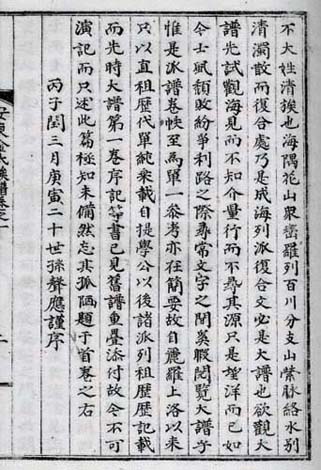 不大姓清族也海隅花山衆巒羅列百川分支山縈脉絡水別
清濁散而復合處乃是成海列派復合文必是大譜也欲觀大
譜先試觀海見而不知介量行而不尋其源只是望洋而已如
今士風頹敗紛爭利路之際尋常文字之間奚暇閱覽大譜乎
惟是派譜卷帙至焉單一參考亦在簡要故自麗羅上洛以来
只以直祖歷代單純乘載自提學公以後諸派列祖歷歷記載
而光時大譜第一卷序記等書已見舊譜重疊添付故今不可
演記而只述此篇極知未備然忘其孤陋題于首卷之右
丙子閏三月庚寅二十世孫聲應謹序
安東金氏族譜卷之一